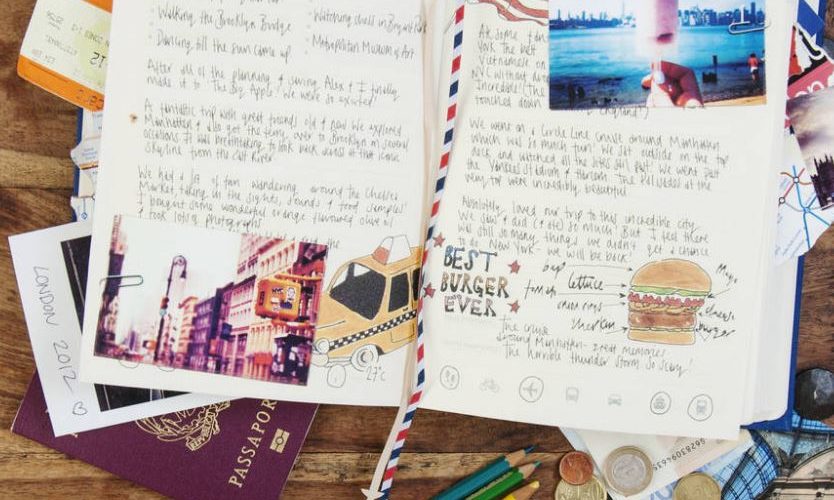 • Walking the Brooklyn Bridge
• Dancing till the sun came up
• Watching chess in Bryant Park
• Metropolitan Museum of Art
After all of the planning & saving Alex & I finally
made it to 'The Big Apple'! We were so excited!
A fantastic trip with great friends old & new. We explored
Manhattan & also got the ferry over to Brooklyn on several
occasions. It was breathtaking to look back across at that iconic
skyline from the East River.
We had lots of fun wandering around the Chelsea
Market taking in the sights, sounds & food samples!
I bought some wonderful orange flavoured olive oil
& took lots of photographs
27°c
York the best
Vietnamese
NYC without
Incredible! (The
touched down
England!)
We went on a Circle Line Cruise around Manhattan
which was so much fun! We sat outside on the top
deck and watched all the sites sail past. We went past
the Yankees Stadium & Harlem. The Palisades at the
very top were incredibly beautiful.
Absolutely loved our trip to this incredible city.
We saw & did (& ate) so much! But I feel there
were still so many things we didn't get a chance
to do. New York - we will be back!
BEST
BURGER
EVER
bap
lettuce
tomato
onion rings
gherkin
Mayo
cheese
burger
The cruise
around Manhattan - great memories
The horrible thunder storm so scary!
LONDON 2012
PASSAPORTO